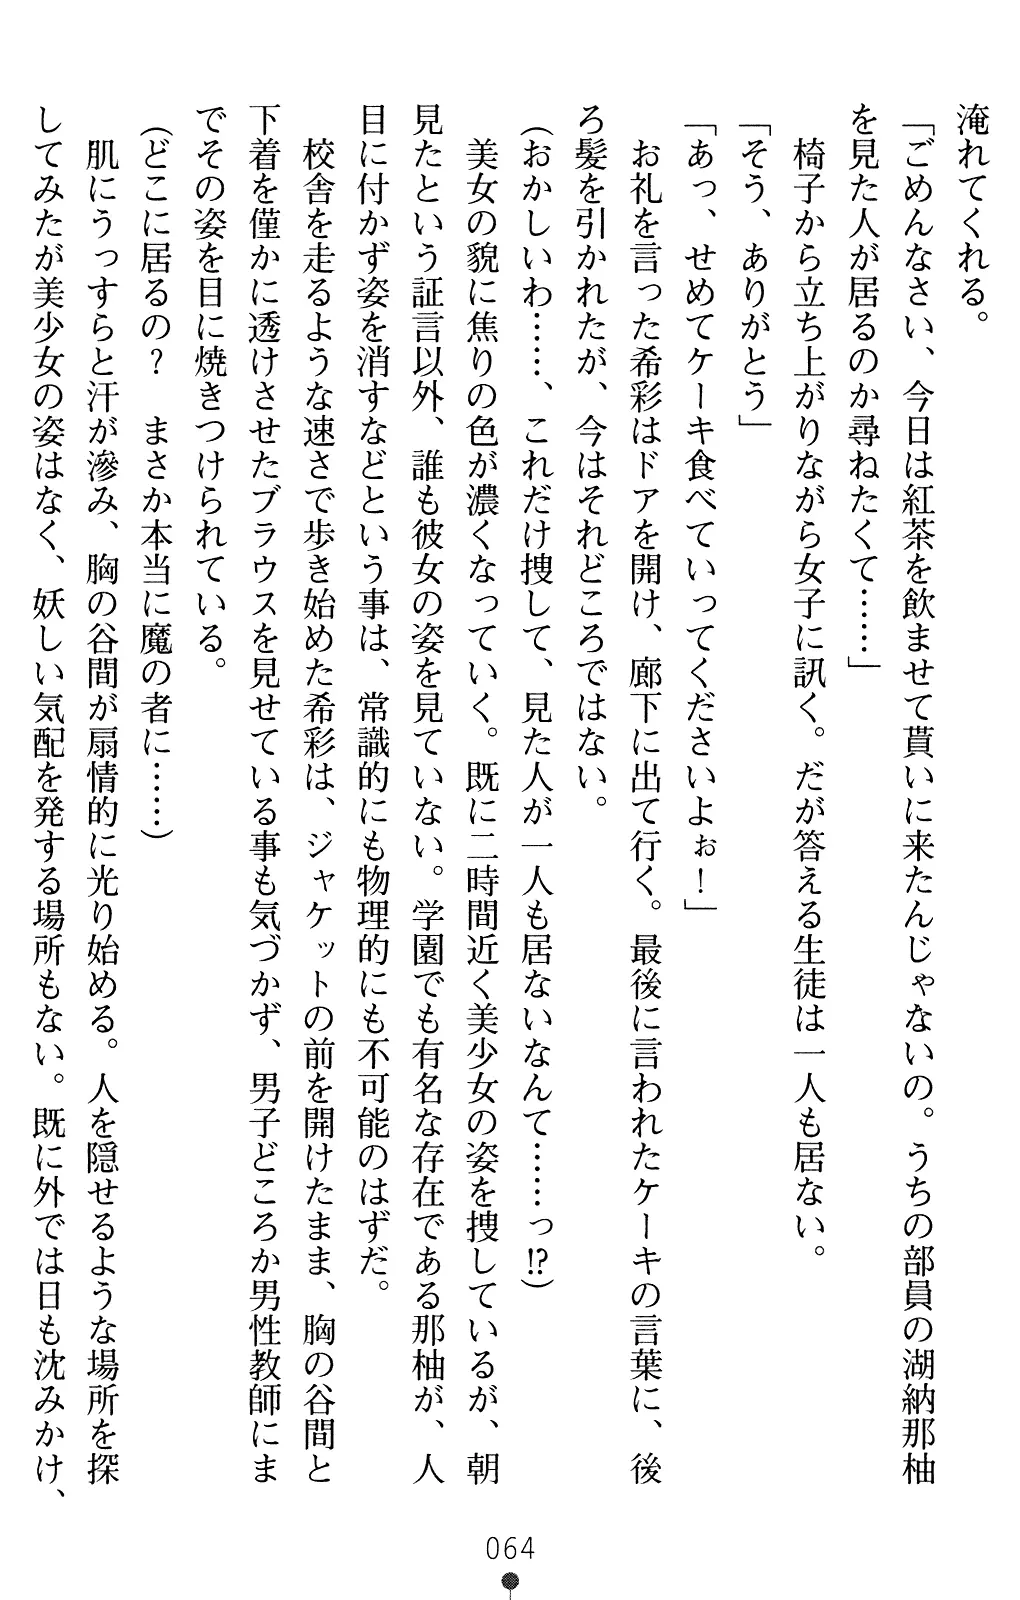 淹れてくれる。
「ごめんなさい、今日は紅茶を飲ませて貰いに来たんじゃないの。うちの部員の湖納那柚
を見た人が居るのか尋ねたくて……」
　椅子から立ち上がりながら女子に訊く。だが答える生徒は一人も居ない。
「そう、ありがとう」
「あっ、せめてケーキ食べていってくださいよぉ！」
　お礼を言った希彩はドアを開け、廊下に出て行く。最後に言われたケーキの言葉に、後
ろ髪を引かれたが、今はそれどころではない。
（おかしいわ……、これだけ捜して、見た人が一人も居ないなんて……っ!?）
　美女の貌に焦りの色が濃くなっていく。既に二時間近く美少女の姿を捜しているが、朝
見たという証言以外、誰も彼女の姿を見ていない。学園でも有名な存在である那柚が、人
目に付かず姿を消すなどという事は、常識的にも物理的にも不可能のはずだ。
　校舎を走るような速さで歩き始めた希彩は、ジャケットの前を開けたまま、胸の谷間と
下着を僅かに透けさせたブラウスを見せている事も気づかず、男子どころか男性教師にま
でその姿を目に焼きつけられている。
（どこに居るの？　まさか本当に魔の者に……）
　肌にうっすらと汗が滲み、胸の谷間が扇情的に光り始める。人を隠せるような場所を探
してみたが美少女の姿はなく、妖しい気配を発する場所もない。既に外では日も沈みかけ、
064